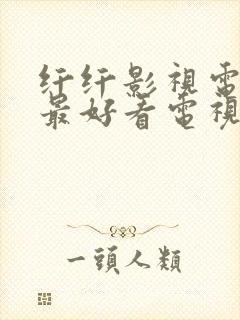 纤纤影視電
最好看電視
一頭人類